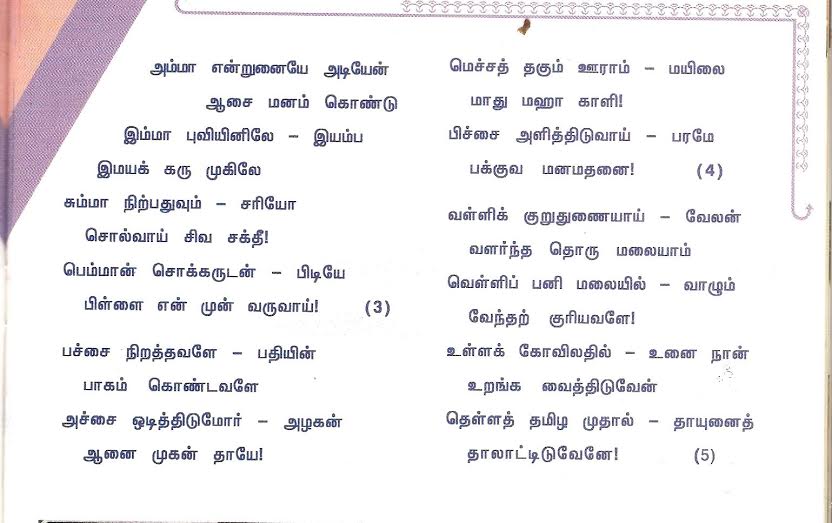 அம்மா என்றுனையே அடியேன்
ஆசை மனம் கொண்டு
இம்மா புவியினிலே – இயம்ப
இமயக் கரு முகிலே
சும்மா நிற்பதுவும் – சரியோ
சொல்வாய் சிவ சக்தீ!
பெம்மான் சொக்கருடன் – பிடியே
பிள்ளை என் முன் வருவாய்! (3)
பச்சை நிறத்தவளே – பதியின்
பாகம் கொண்டவளே
அச்சை ஒடித்திடுமோர் – அழகன்
ஆனை முகன் தாயே!
மெச்சத் தகும் ஊராம் – மயிலை
மாது மஹா காளி!
பிச்சை அளித்திடுவாய் – பரமே
பக்குவ மனமதனை! (4)
வள்ளிக் குறுதுணையாய் – வேலன்
வளர்ந்த தொரு மலையாம்
வெள்ளிப் பனி மலையில் – வாழும்
வேந்தற் குரியவளே!
உள்ளக் கோவிலதில் – உனை நான்
உறங்க வைத்திடுவேன்
தெள்ளத் தமிழ முதால் – தாயுனைத்
தாலாட்டிடுவேனே! (5)